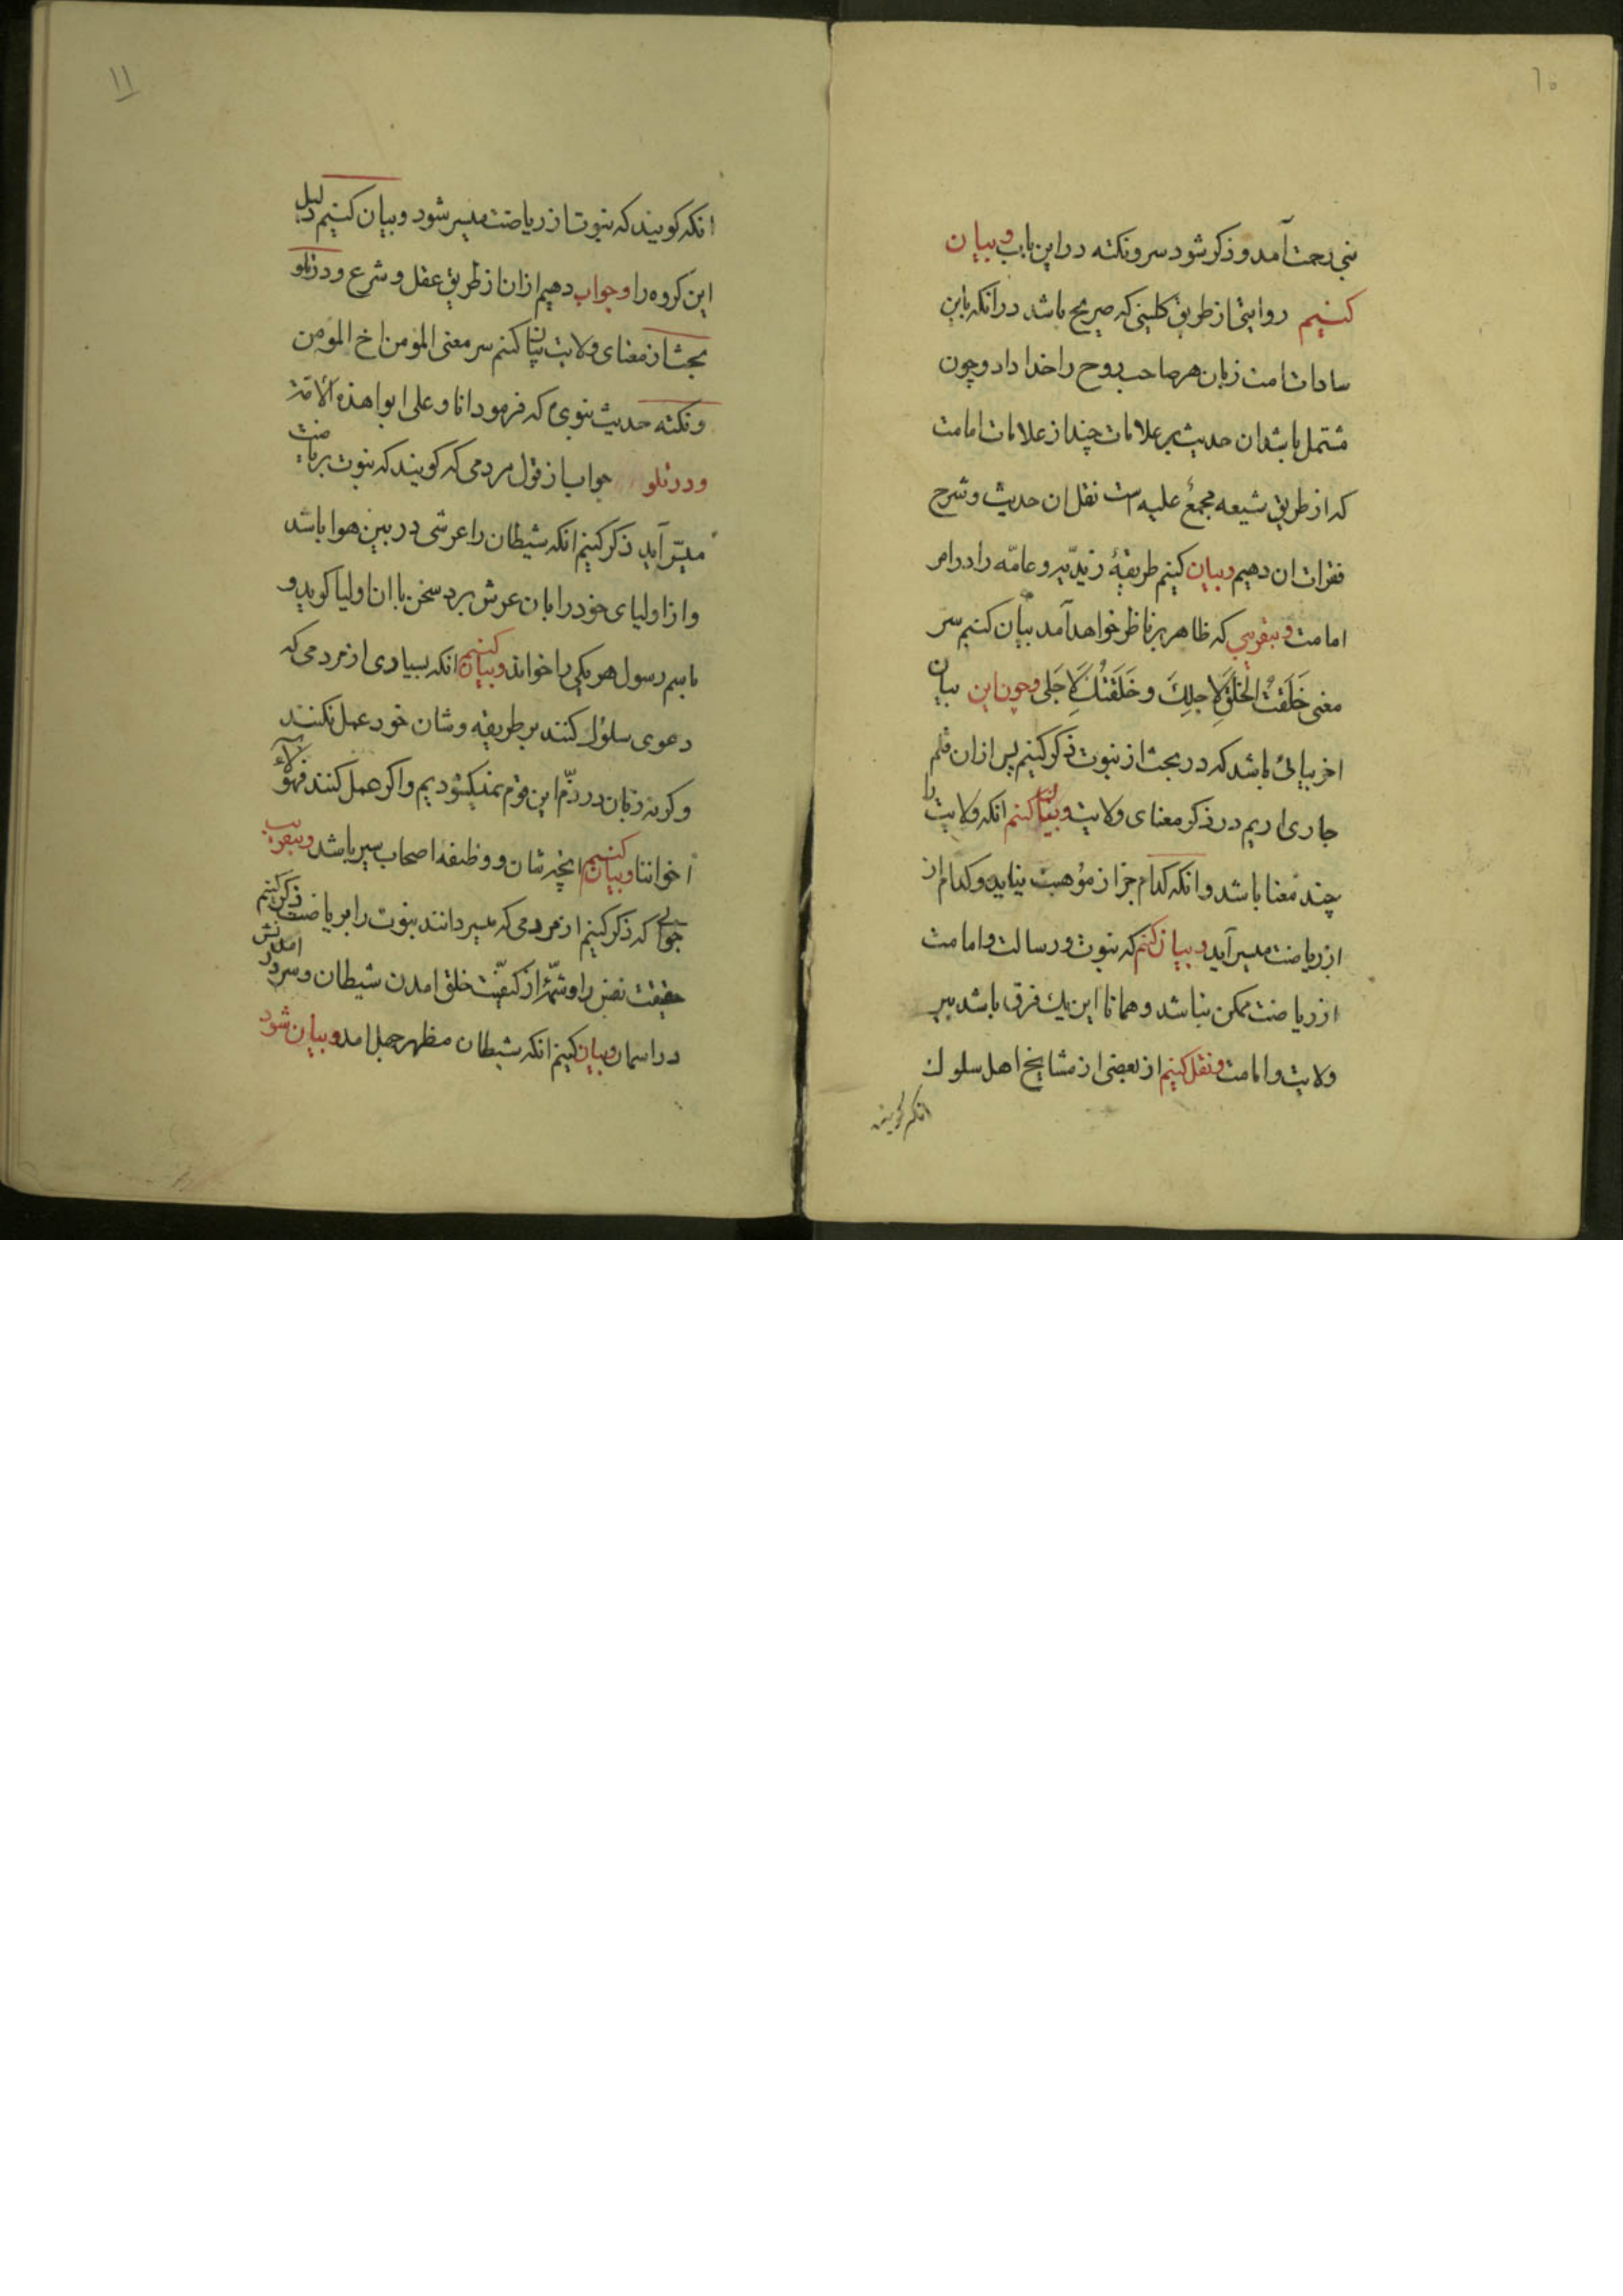 ۱۰
نبی رحمت آمد و ذکر شود سر و نکته در این باب و بیان
کنیم روایتی از طریق کلینی که صریح باشد در انکه باین
سادات امت زبان هر صاحب روح را خدا داد و چون
مشتمل باشد ان حدیث بر علامات چند از علامات امامت
که از طریق شیعه مجمع علیه است نقل ان حدیث و شرح
فقرات ان دهیم و بیان کنیم طریقهٔ زیدیّه و عامّه را در امر
امامت و بتقریبی که ظاهر بر ناظر خواهد آمد بیان کنیم سر
معنی خَلَقتُ الخَلقَ لِاَجلِكَ و خَلَقتُكَ لِاَجَلی و چون این بیان
اخر بیانی باشد که در بحث از نبوت ذکر کنیم پس از ان قلم
جاری اریم در ذکر معنای ولایت و بیان کنیم انکه ولایت را
چند معنا باشد و انکه کدام جز از موهبت نیاید و کدام از
از ریاضت میسر آید و بیان کنیم که نبوت و رسالت و امامت
از ریاضت ممکن نباشد و همانا این یك فرق باشد بین
ولایت و امامت و نقل کنیم از بعضی از مشایخ اهل سلوك
انکه کویند
۱۱
انکه کویند که نبوت از ریاضت میسر شود و بیان کنیم دلیل
این کروه را و جواب دهیم از ان از طریق عقل و شرع و در تلو
بحث از معنای ولایت بیان کنیم سر معنی المؤمن اخ المؤمن
و نکته حدیث نبوی که فرمود انا و علی ابوا هذه الأمّة
و در تلو جواب از قول مردمی که کویند که نبوت بریاضت
میسّر آید ذکر کنیم انکه شیطان را عرشی در بین هوا باشد
و از اولیای خود را بان عرش برد سخن با ان اولیا کوید و
باسم رسول هر یکی را خواند و بیان کنیم انکه بسیاری از مردمی که
دعوی سلوك کنند بر طریقه و شان خود عمل نکنند
و کرنه زبان در ذمّ این قوم نمیکشودیم و اکر عمل کنند فهؤلاء
اخواننا و بیان کنیم انچه شان و وظیفه اصحاب سیر باشد و بتقریب
جوابی که ذکر کنیم از مردمی که میسر دانند نبوت را بریاضت ذکر کنیم
حقیقت نفس را و شمّهٔ از کیفیّت خلق امدن شیطان و سر در امدنش
در اسمان و بیان کنیم انکه شیطان مظهر جهل امد و بیان شود